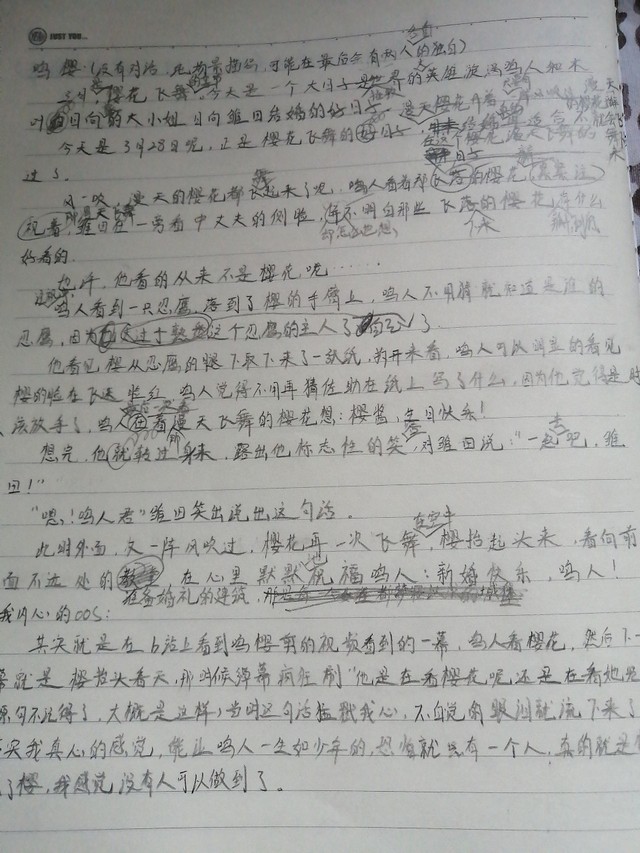 JUST YOU...
鸣樱(没有对话,死物景描写,可能在最后会有两人的独白)
三月,樱花飞舞。今天是一个大日子是世界的英雄漩涡鸣人和木
叶日向的大小姐日向雏田结婚的好日子
今天是3月28日呢,正是樱花飞舞的好日子,
过了。
风一吹,漫天的樱花都飞起来了呢,鸣人看着那飞落的樱花
观看,雏田在一旁看中丈夫的侧脸,不明白那些飞落的樱花,有什么
好看的.
也许,他看的从来不是樱花呢……
鸣人看到一只忍鹰,落到了樱的手臂上,鸣人不用猜就知道是谁的
忍鹰,因为过于熟悉这个忍鹰的主人了
他看见樱从忍鹰的腿下取下来了一张纸,打开来看,鸣人可以明显的看见
樱的脸在飞速变红,鸣人觉得不用再猜佐助在纸上写了什么,因为他觉得是时
该放手了,鸣人看着漫天飞舞的樱花想:樱酱,生日快乐!
想完,他就转过身来,露出他标志性的笑,对雏田说:"一起去吧,雏
田!"
"嗯!鸣人君"雏田笑出说出这句话.
此时外面,又一阵风吹过,樱花再一次在空中飞舞,樱抬起头来,看向前
面不远处的在备婚礼的建筑,在心里默默地祝福鸣人:新婚快乐,鸣人!
我内心的OOS:
其实就是在b站上看到鸣樱剪的视频看到的一幕,鸣人看樱花,然后下一
幕就是樱抬头看天,那时候弹幕疯狂刷"他是在看樱花呢还是在看她呢
原句不记得了,大概是这样)当时这句话猛戳我心,不自觉的眼泪就流下来了
其实我真心的感觉,能让鸣人一生如少年的,恐怕就只有一个人,真的就是
了樱,我感觉没有人可以做到了。